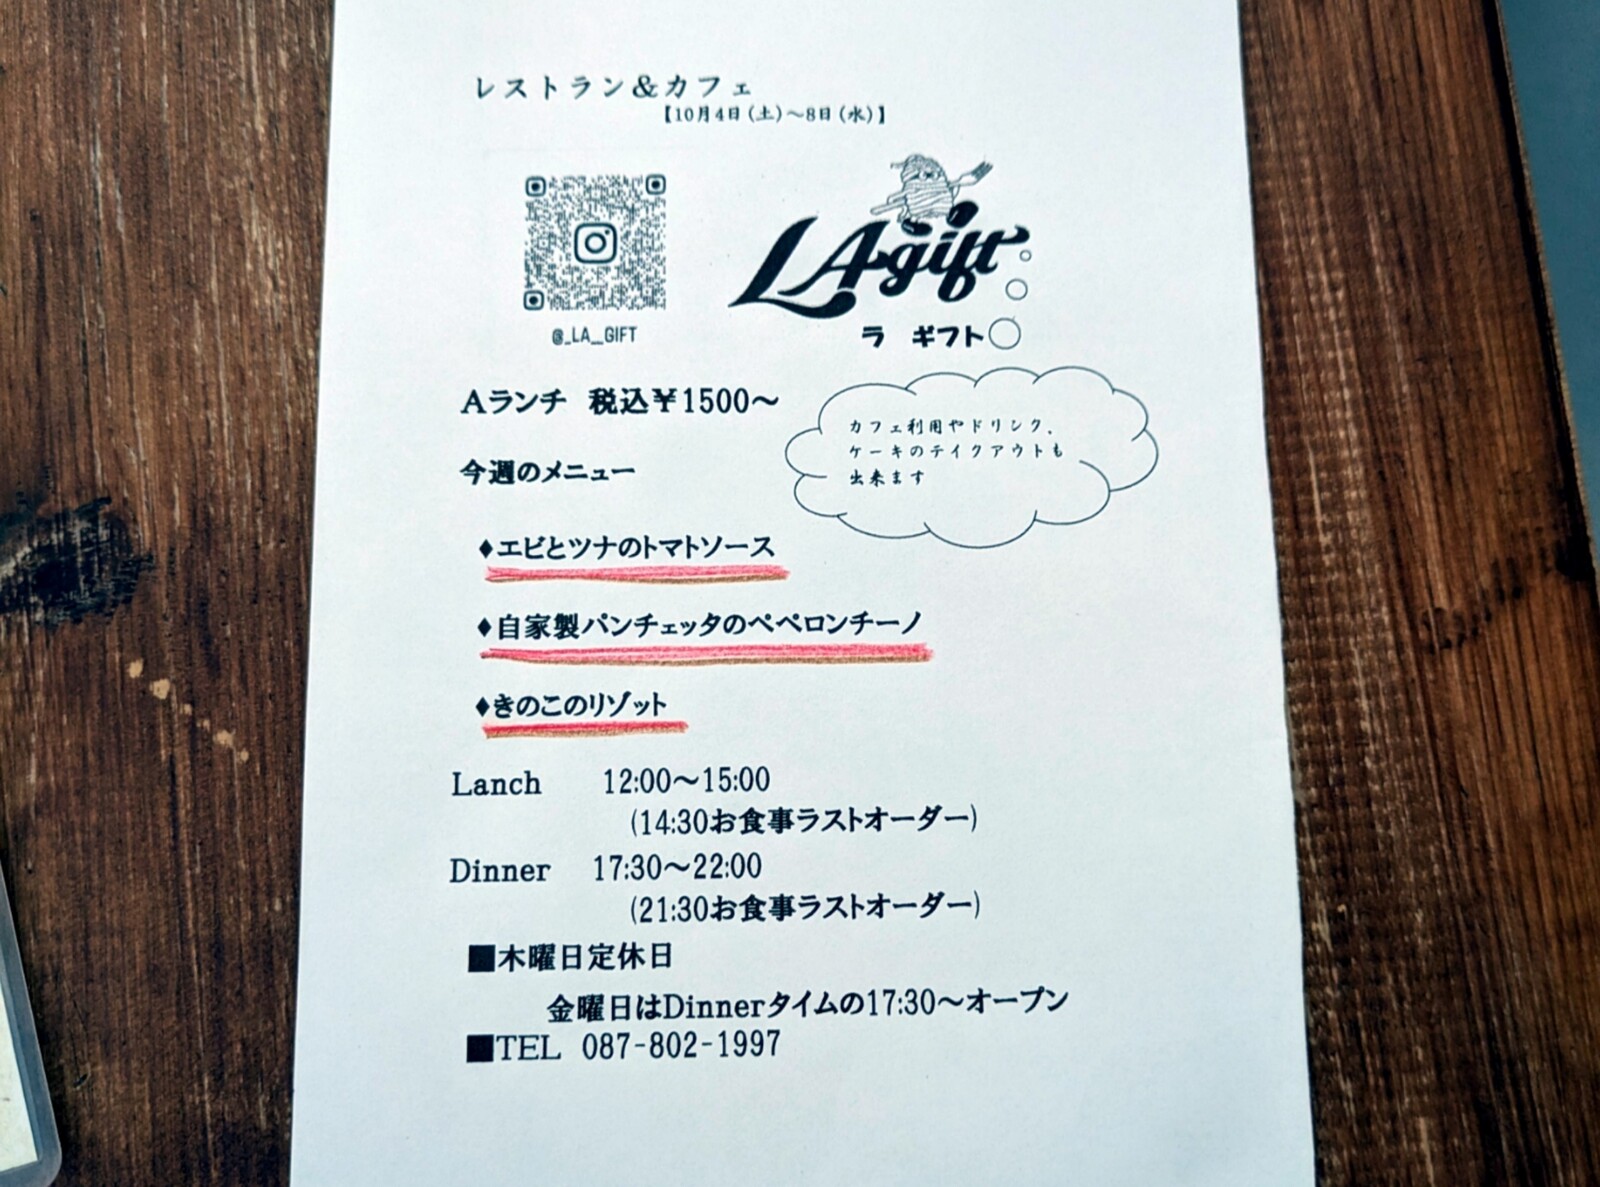 レストラン&カフェ
【10月4日(土)～8日(水)】
LAgift
ラ ギフト
@_LA__GIFT
Aランチ 税込￥1500～
カフェ利用やドリンク、
ケーキのテイクアウトも
出来ます
今週のメニュー
♦エビとツナのトマトソース
♦自家製パンチェッタのペペロンチーノ
♦きのこのリゾット
Lanch 12:00～15:00
(14:30お食事ラストオーダー)
Dinner 17:30～22:00
(21:30お食事ラストオーダー)
■木曜日定休日
金曜日はDinnerタイムの17:30～オープン
■TEL 087-802-1997